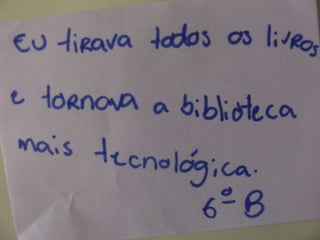 EU tirava todos os livros
e tornava a biblioteca
mais tecnológica.
6º B